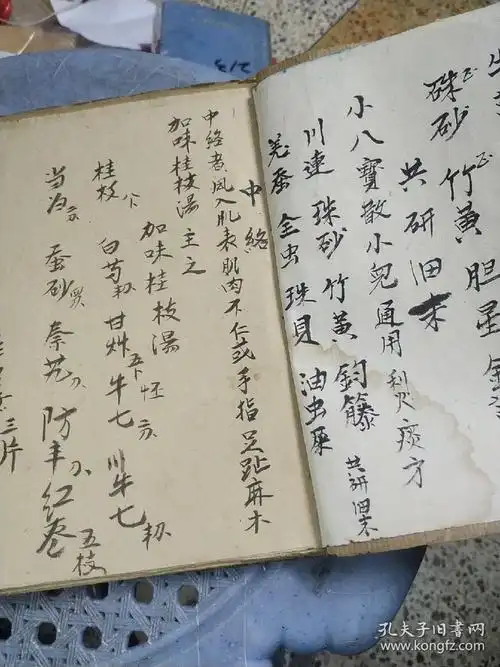 硃砂 正 竹黄 正 胆星 金
共研细末
小八寶散小兒通用利火痰方
川連 珠砂 竹黄 鈎籐 共研细末
羌蚕 全虫 珠貝 油虫
中絡
中絡者風入肌表肌肉不仁或手指足趾麻木
加味桂枝湯主之
加味桂枝湯
桂枝 白芍 甘艸 牛七 川牛七
当归 蚕砂 秦艽 防丰 红枣 五枝
三片
孔夫子旧书网
www.kongfz.com